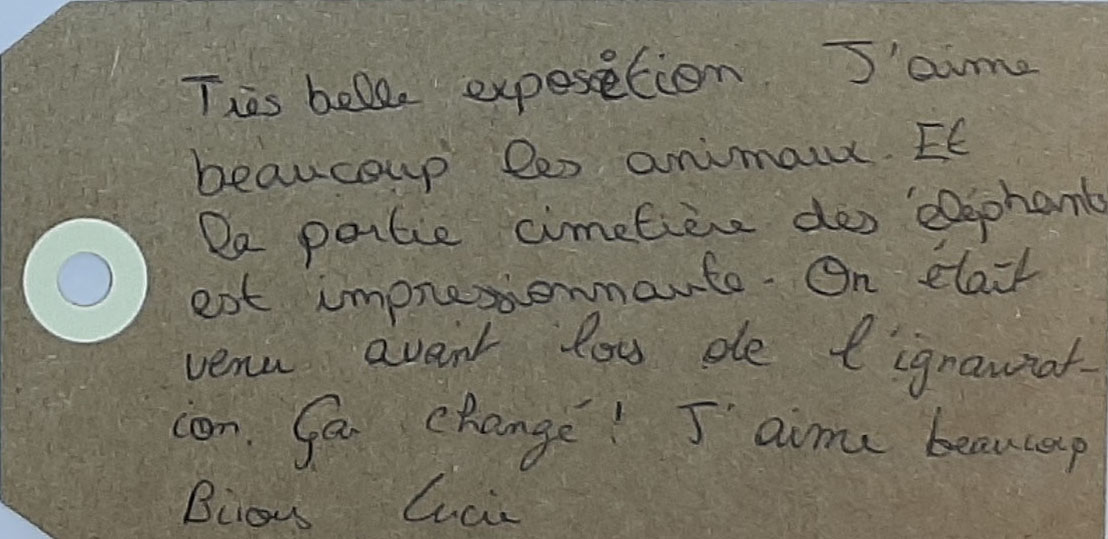 Très belle exposition. J'aime
beaucoup les animaux. Et
la partie cimetière des éléphants
est impressionnante. On était
venu avant lors de l'ignaurat-
ion. Ça changé ! J'aime beaucoup
Bisous Lucie